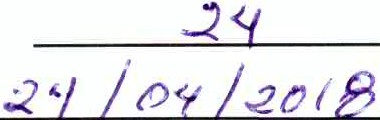 24
24/04/2018